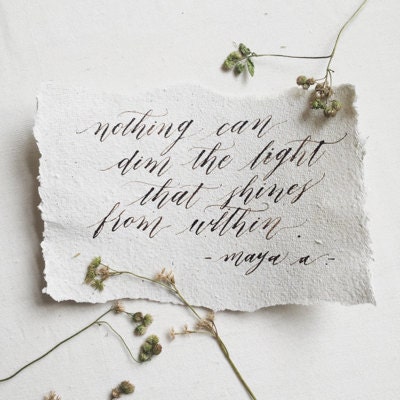 nothing can
dim the light
that shines
from within.
- maya a -